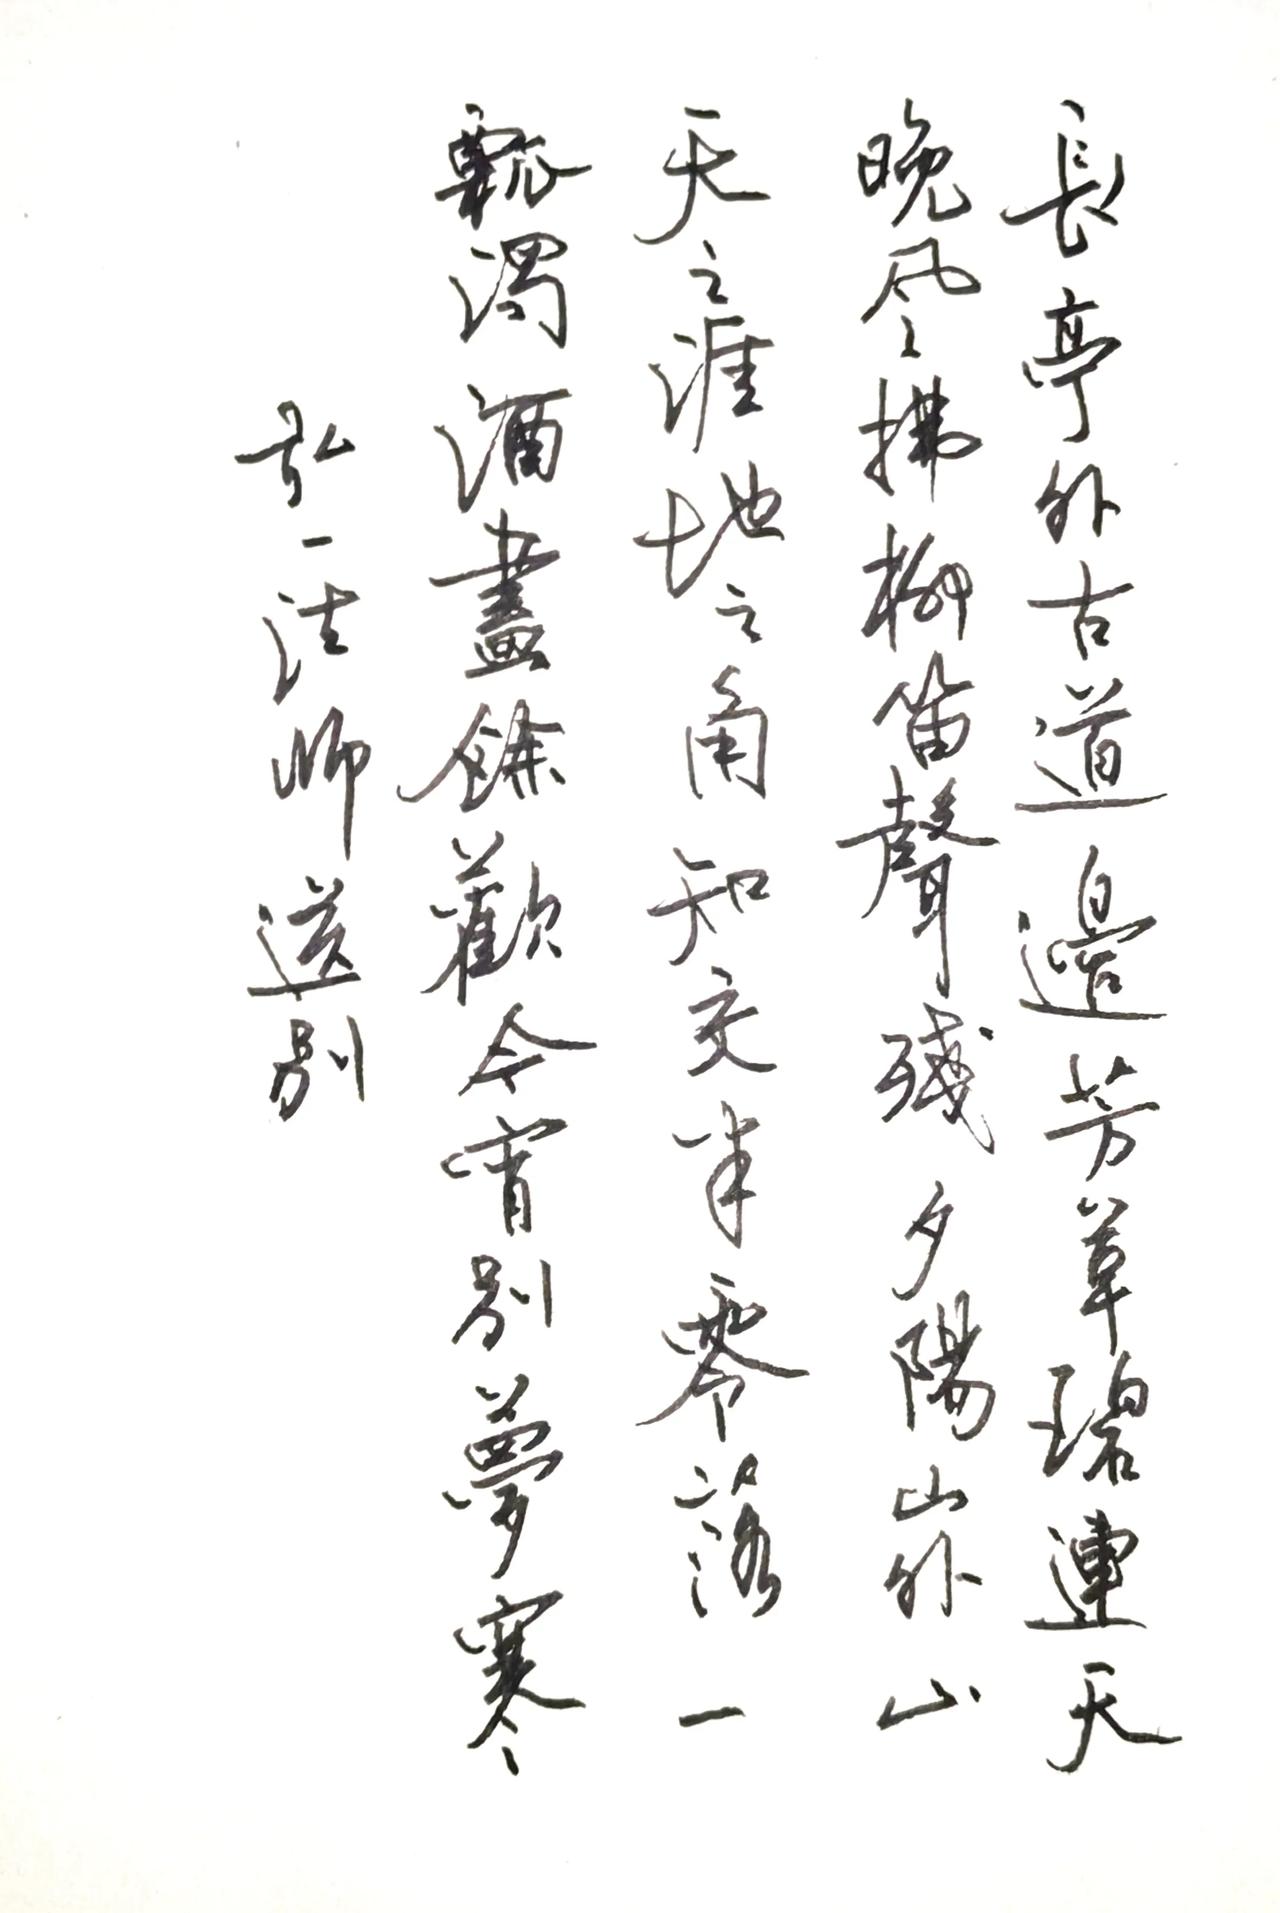 長亭外古道邊芳草碧連天
晚風拂柳笛聲殘夕陽山外山
天之涯地之角知交半零落一
瓢濁酒盡餘歡今宵別夢寒
弘一法師送別